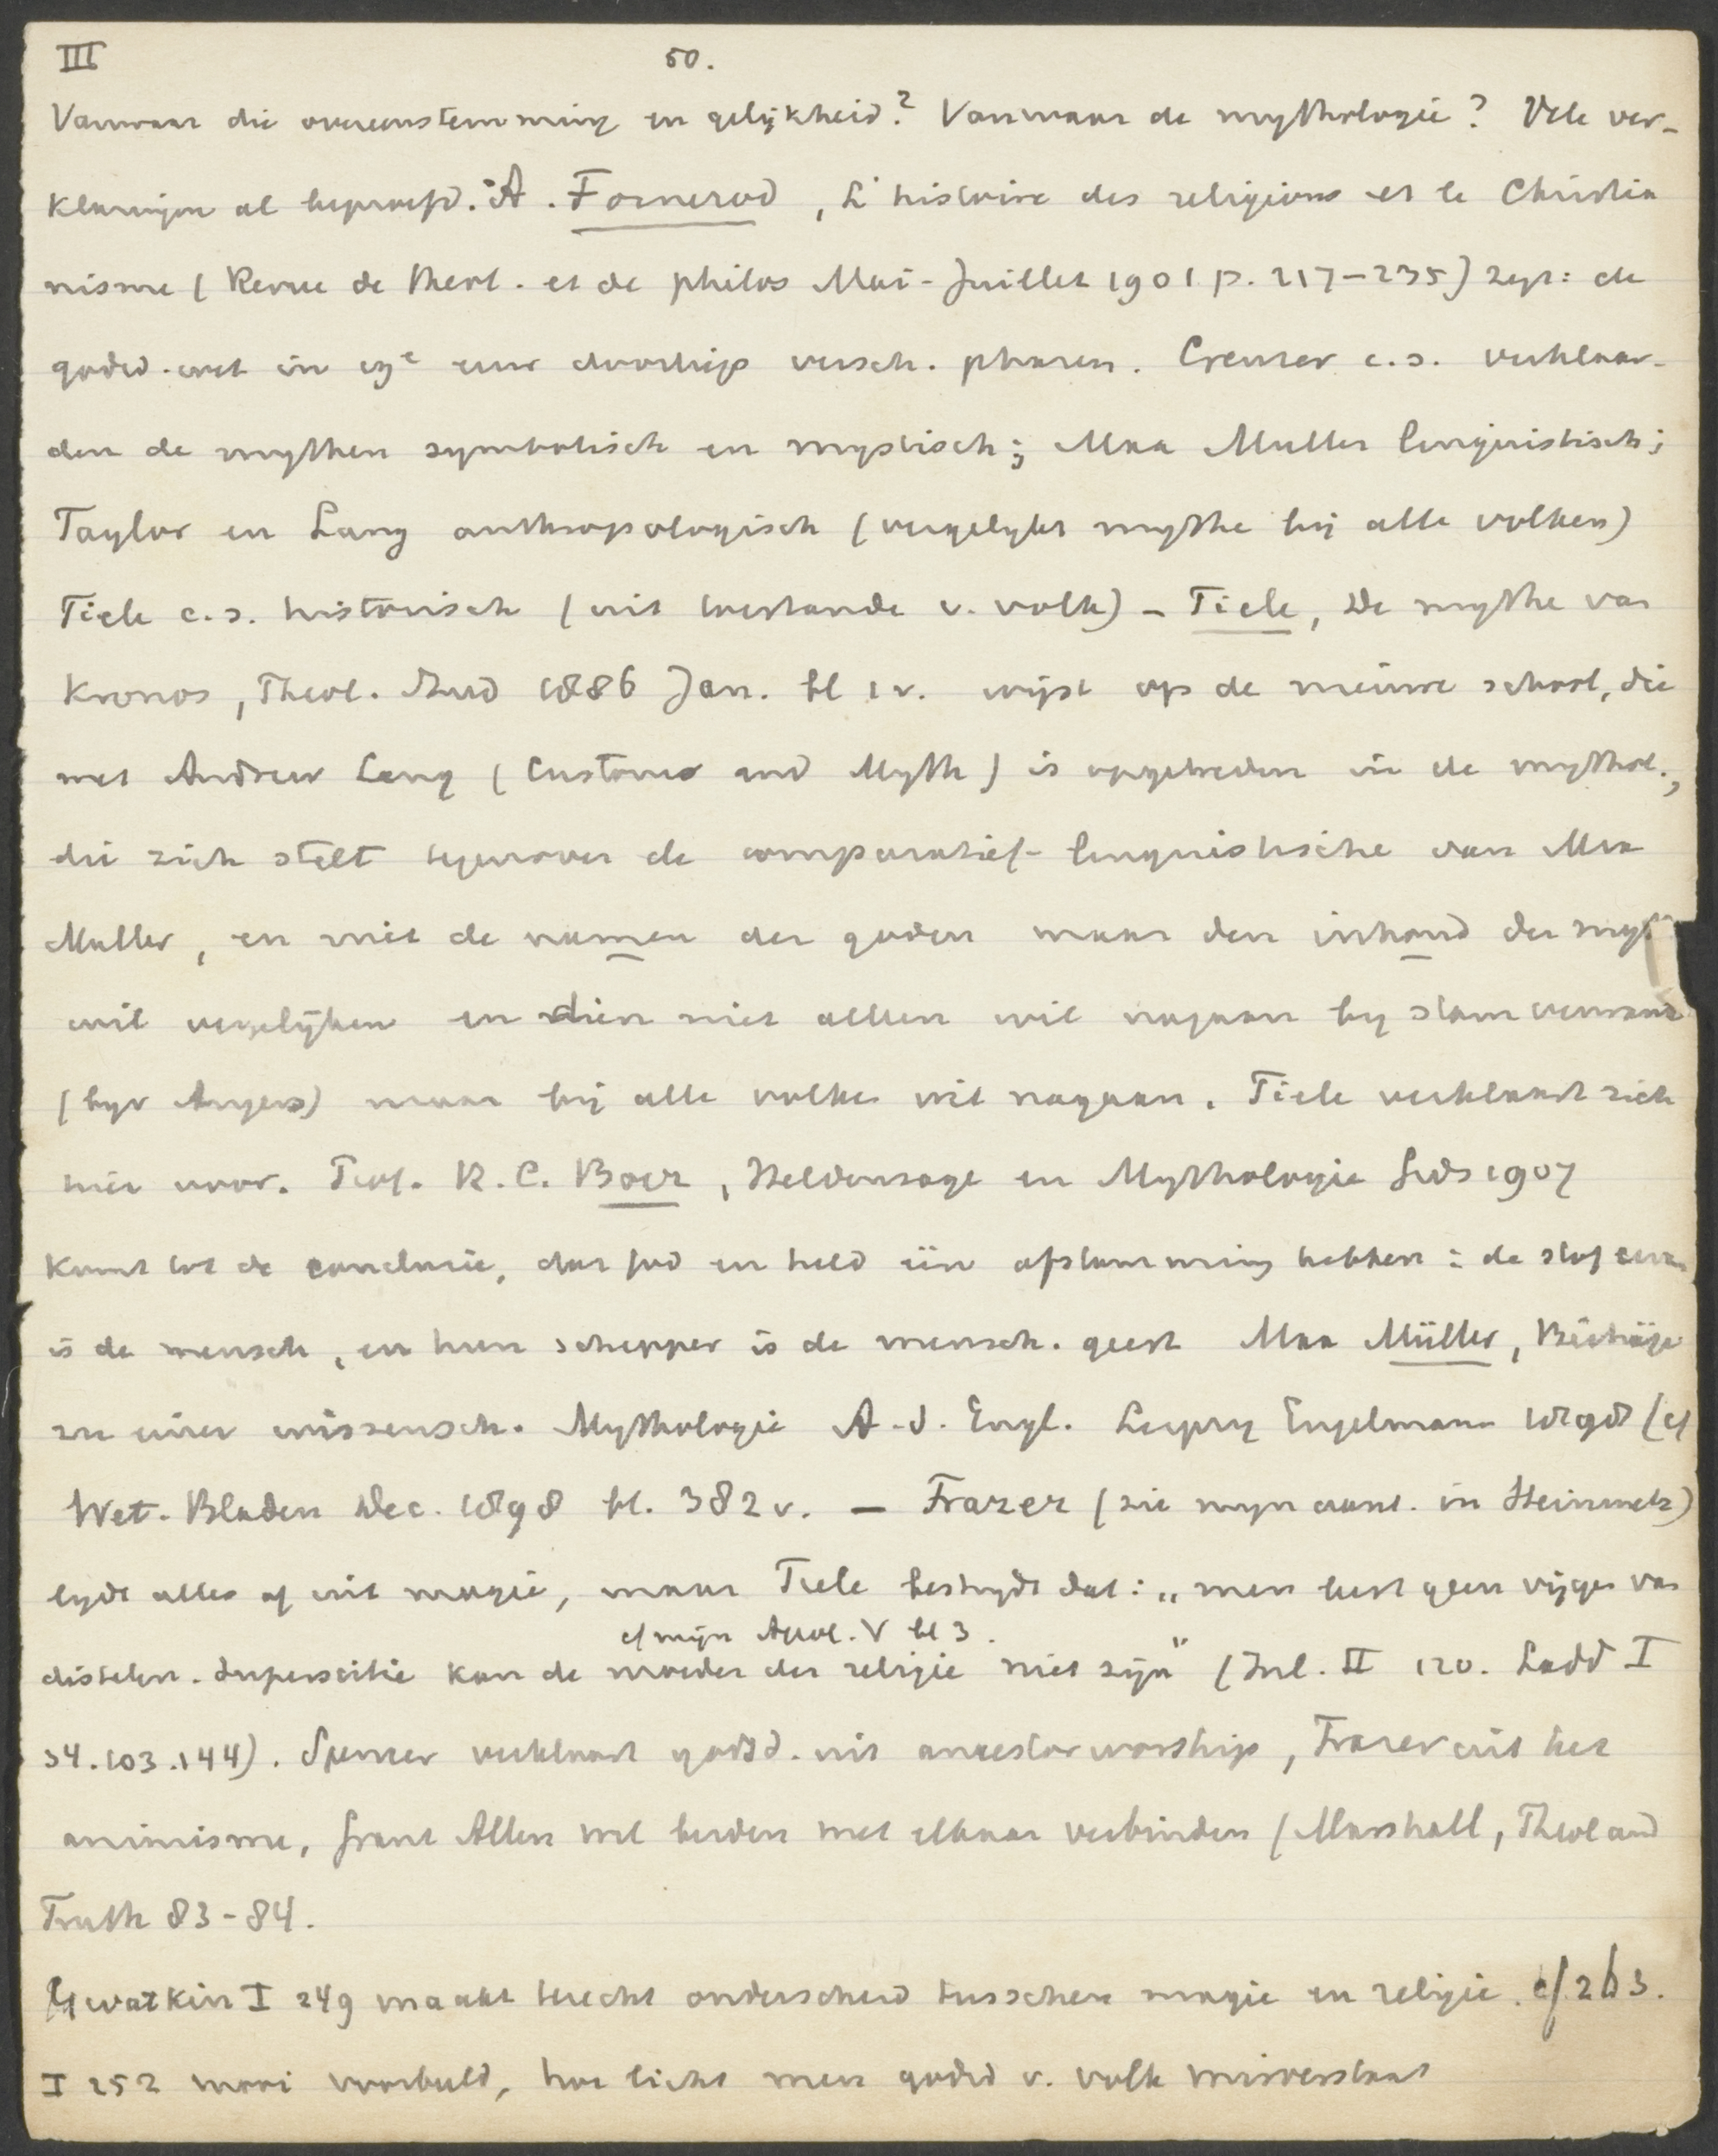 III 50.
Vanwaar die overeenstemming en gelijkheid? Vanwaar de mythologie? Vele ver-
klaringen al beproefd. A. Fornerod, L'histoire des religions et le Christia
nisme (Revue de theol. et de philos Mai-Juillet 1901 p. 217-235) zegt: de
godsd. wet. in 19e eeuw doorliep versch. phasen. Creuzer c.s. verklaar-
den de mythen symbolisch en mystisch; Max Muller linguistisch;
Taylor en Lang anthropologisch (vergelykt mythe bij alle volken)
Tiele c.s. historisch (uit toestande v. volk) - Tiele, De mythe van
Kronos, Theol. Tijd 1886 Jan. bl 1 v. wijst op de nieuwe school, die
met Andrew Lang (Customs and Myth) is opgetreden in de mythol.,
die zich stelt tegenover de comparatief-linguistische van Max
Muller, en niet de namen der goden maar den inhoud der myth
wil vergelijken en dien niet alleen wil nagaan by stamverwand
(byv Ariers) maar bij alle volken wil nagaan. Tiele verklaart zich
hier voor. Prof. R. C. Boer, Heldensage en Mythologie Gids 1907
komt tot de conclusie, dat god en held één afstamming hebben: de stof
is de mensch, en hun schepper is de mensch. geest Max Müller, Beiträge
zu einer wissensch. Mythologie A. d. Engl. Leipzig Engelmann 1898 (cf
Wet. Bladen Dec. 1898 bl. 382 v. - Frazer (zie myn aant. in Steinmetz)
lydt alles af uit magie, maar Tiele bestrydt dat: „men leest geen vijgen van
cf mijn Apol. V bl 3.
distelen. Superstitie kan de moeder der religie niet zijn" (Inl. II 120. Ladd I
34. 103. 144). Spencer verklaart godsd. uit ancestor worship, Frazer uit het
animisme, Grant Allen wil beiden met elkaar verbinden (Marshall, Theol and
Truth 83-84.
Gwatkin I 249 maakt terecht onderscheid tusschen magie en religie. cf. 263.
I 252 mooi voorbeeld, hoe licht men godsd v. volk misverstaat